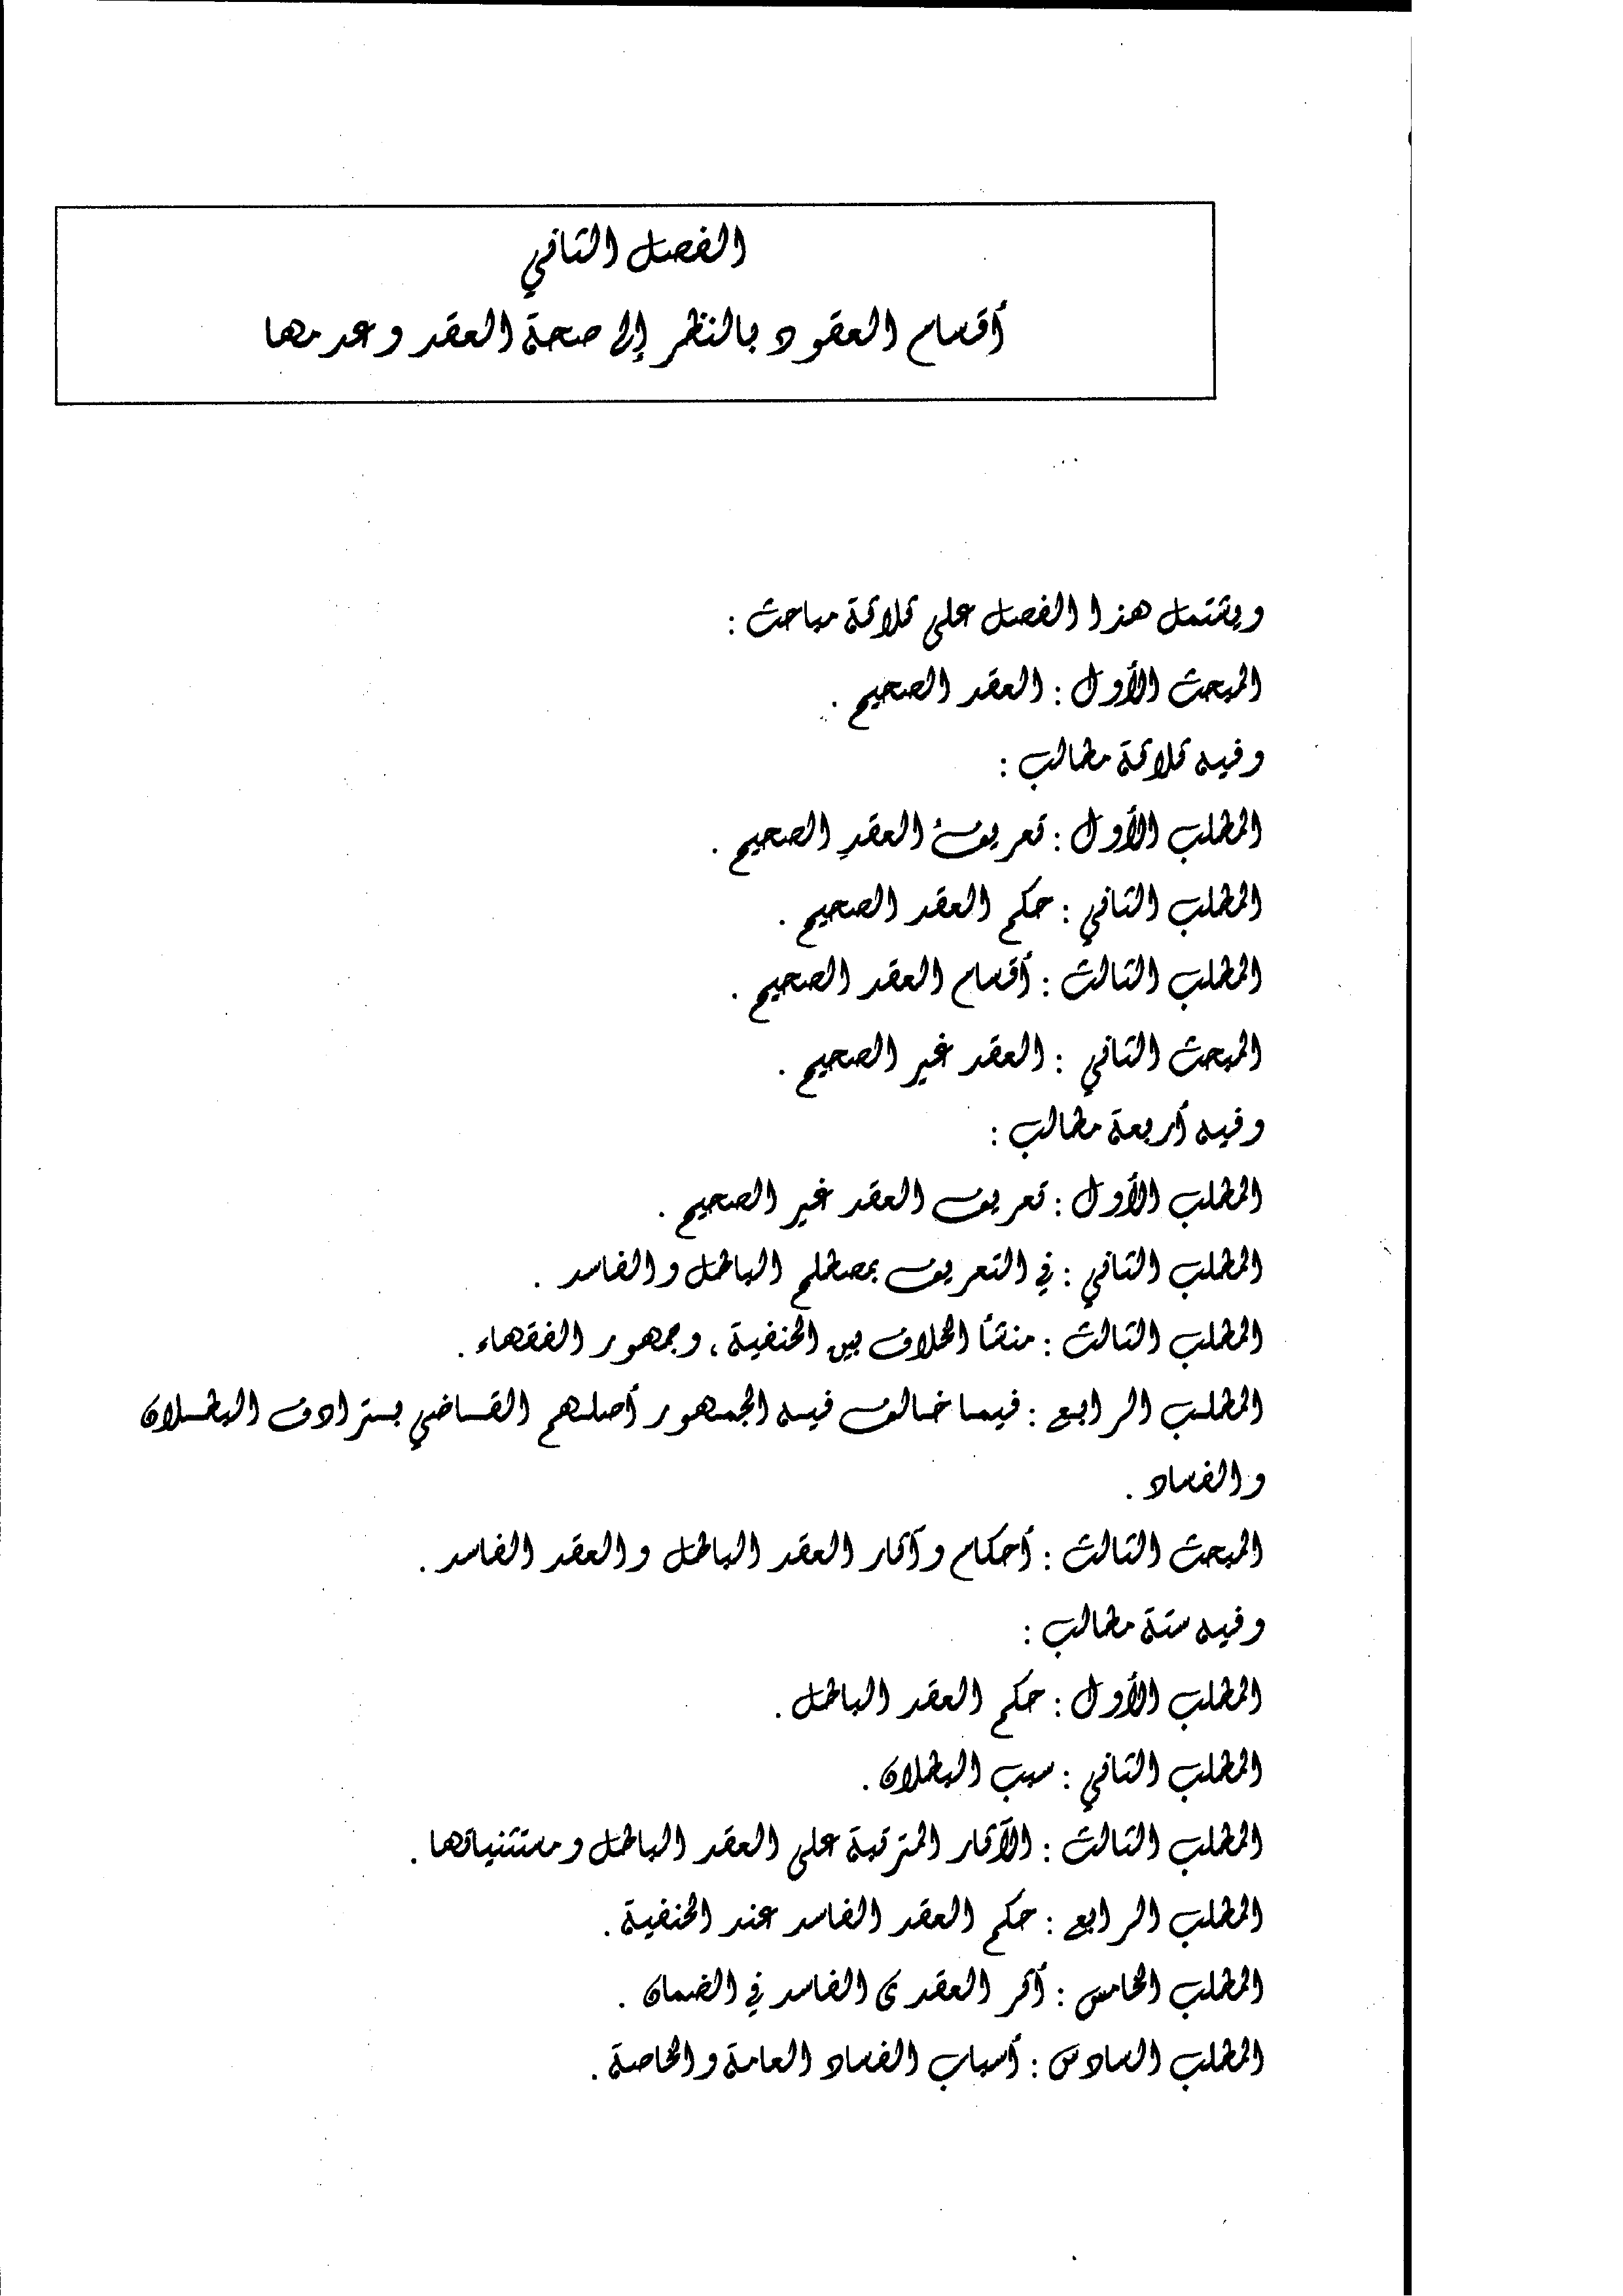 الفصل الثاني
أقسام العقود بالنظر إلى صحة العقد وعدمها
ويشتمل هذا الفصل على ثلاثة مباحث :
المبحث الأول : العقد الصحيح .
وفيه ثلاثة مطالب :
المطلب الأول : تعريفُ العقدِ الصحيح .
المطلب الثاني : حكم العقد الصحيح .
المطلب الثالث : أقسام العقد الصحيح .
المبحث الثاني : العقد غير الصحيح .
وفيه أربعة مطالب :
المطلب الأول : تعريف العقد غير الصحيح .
المطلب الثاني : في التعريف بمصطلح الباطل والفاسد .
المطلب الثالث : منشأ الخلاف بين الحنفية ، وجمهور الفقهاء .
المطلب الرابع : فيما خالف فيه الجمهور أصلهم القاضي بترادف البطلان
والفساد .
المبحث الثالث : أحكام وآثار العقد الباطل والعقد الفاسد .
وفيه ستة مطالب :
المطلب الأول : حكم العقد الباطل .
المطلب الثاني : سبب البطلان .
المطلب الثالث : الآثار المترتبة على العقد الباطل ومستثنياتها .
المطلب الرابع : حكم العقد الفاسد عند الحنفية .
المطلب الخامس : أثر العقدى الفاسد في الضمان .
المطلب السادس : أسباب الفساد العامة والخاصة .